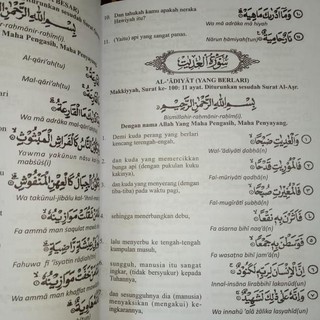 BESAR)
بِسْمِ اللّٰهِ الرَّحْمٰنِ الرَّحِيْمِ
-rahmānir-rahīm(i)
Maha Pengasih, Maha Penyayang.
Al-qāri‘ah(tu)
Mal-qāri‘ah(tu)
اَلْقَارِعَةُ
Wa mā adrāka mal-qāri‘ah(tu)
كَالْفَرَاشِ الْمَبْثُوْثِ
Yawma yakūnun nāsu
mabsūs(i)
الْجِبَالُ كَالْعِهْنِ الْمَنْفُوْشِ
Wa takūnul-jibālu
ثَقُلَتْ مَوَازِيْنُهٗ
Fa ammā man saqulat
عِيْشَةٍ رَّاضِيَةٍ
Fahuwa fī ‘īsyatin rādiyah
خَفَّتْ مَوَازِيْنُهٗ
Wa ammā man khaffat
10. Dan tahukah kamu apakah neraka Hawiyah itu?
وَمَآ اَدْرٰىكَ مَا هِيَهْ
Wa mā adrāka mā hiyah
11. (Yaitu) api yang sangat panas.
نَارٌ حَامِيَةٌ
Nārun hāmiyah(tun)
سُوْرَةُ الْعٰدِيٰتِ
AL-‘ĀDIYĀT (YANG BERLARI)
Makkiyyah, Surat ke- 100: 11 ayat. Diturunkan sesudah Surat Al-Aṣr.
بِسْمِ اللّٰهِ الرَّحْمٰنِ الرَّحِيْمِ
Bismillāhir-rahmānir-rahīm(i)
Dengan nama Allah Yang Maha Pengasih, Maha Penyayang.
1. Demi kuda perang yang berlari
kencang terengah-engah,
وَالْعٰدِيٰتِ ضَبْحًا
Wal-‘ādiyāti ḍabḥā(n)
2. dan kuda yang memercikkan
bunga api (dengan pukulan kuku
kakinya),
فَالْمُوْرِيٰتِ قَدْحًا
Fal-mūriyāti qadḥā(n)
dan kuda yang menyerang (dengan
tiba-tiba) pada waktu pagi,
فَالْمُغِيْرٰتِ صُبْحًا
Fal-mugīrāti ṣubḥā(n)
sehingga menerbangkan debu,
فَاَثَرْنَ بِهٖ نَقْعًا
Fa aṡarna bihī naq‘ā(n)
lalu menyerbu ke tengah-tengah
kumpulan musuh,
فَوَسَطْنَ بِهٖ جَمْعًا
Fa wasaṭna bihī jam‘ā(n)
sesungguhnya, manusia itu sangat
ingkar, (tidak bersyukur) kepada
Tuhannya,
اِنَّ الْاِنْسَانَ لِرَبِّهٖ لَكَنُوْدٌ
Innal-insāna lirabbihī lakanūd(un)
dan sesungguhnya dia (manusia)
menyaksikan (mengakui)
وَاِنَّهٗ عَلٰى ذٰلِكَ لَشَهِيْدٌ
Wa innahū ‘alā żālika lasyahīd(un)